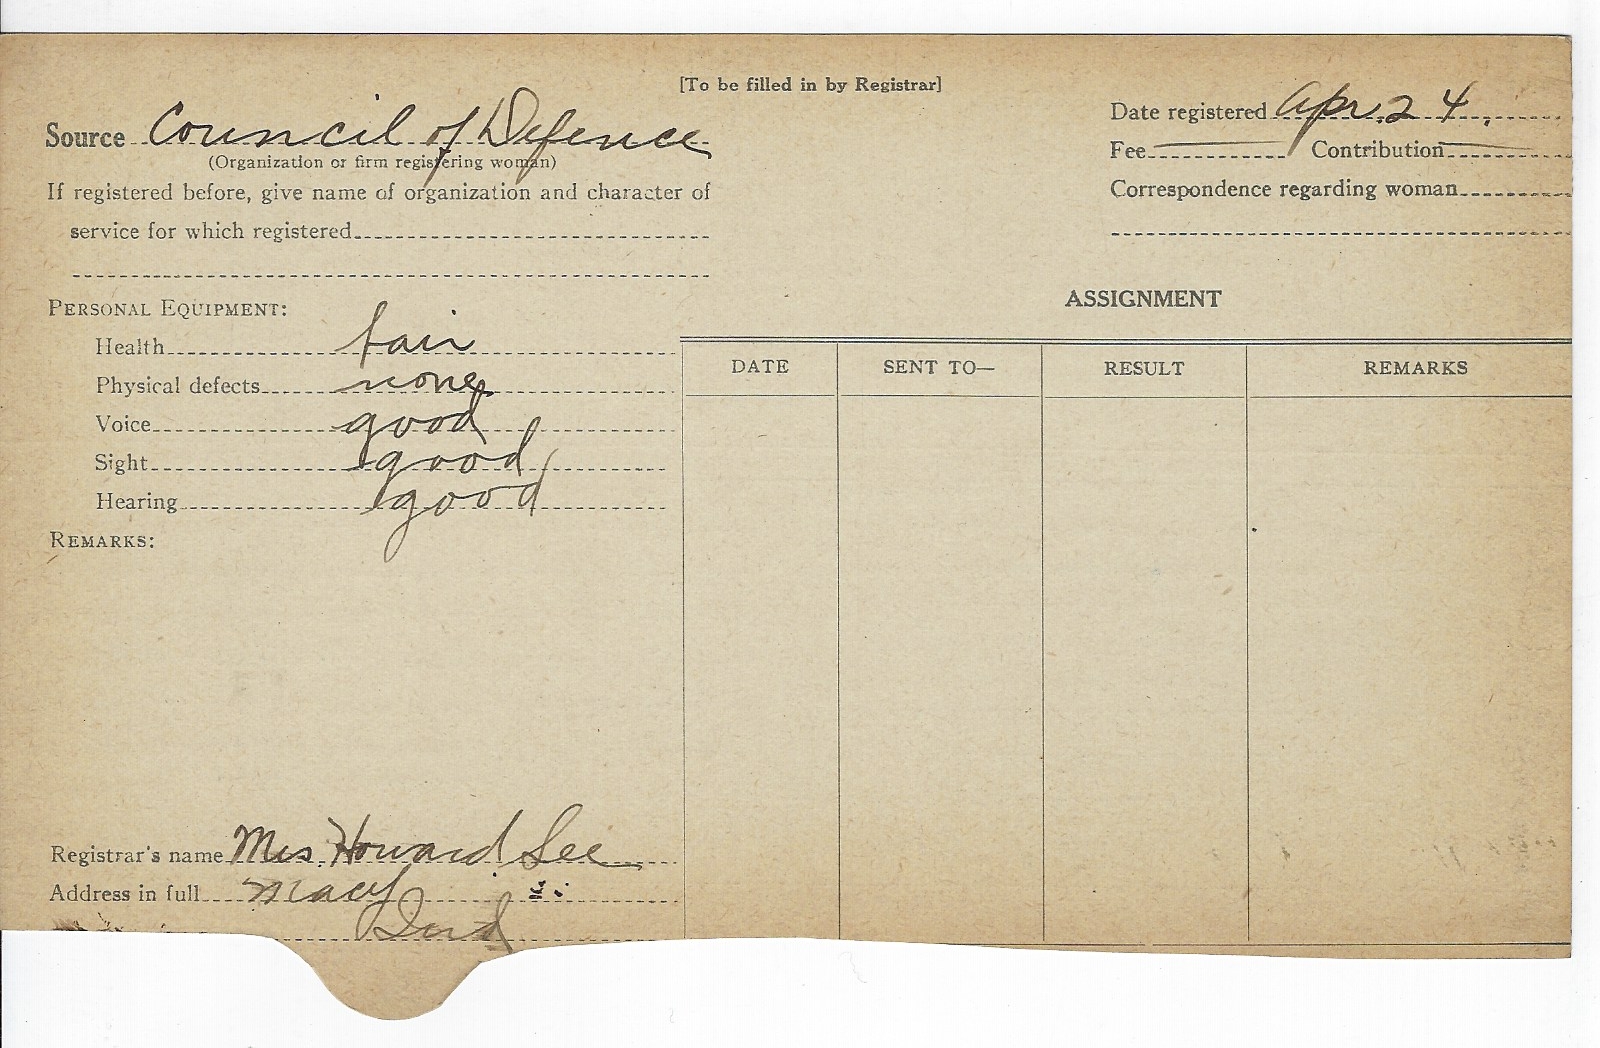 [To be filled in by Registrar]
Source Council of Defence
(Organization or firm registering woman)
If registered before, give name of organization and character of
service for which registered
Date registered Apr. 24.
Fee Contribution
Correspondence regarding woman
PERSONAL EQUIPMENT:
Health fair
Physical defects none
Voice good
Sight good
Hearing good
REMARKS:
ASSIGNMENT
DATE SENT TO— RESULT REMARKS
Registrar's name Mrs. Howard See
Address in full Macy
Ind